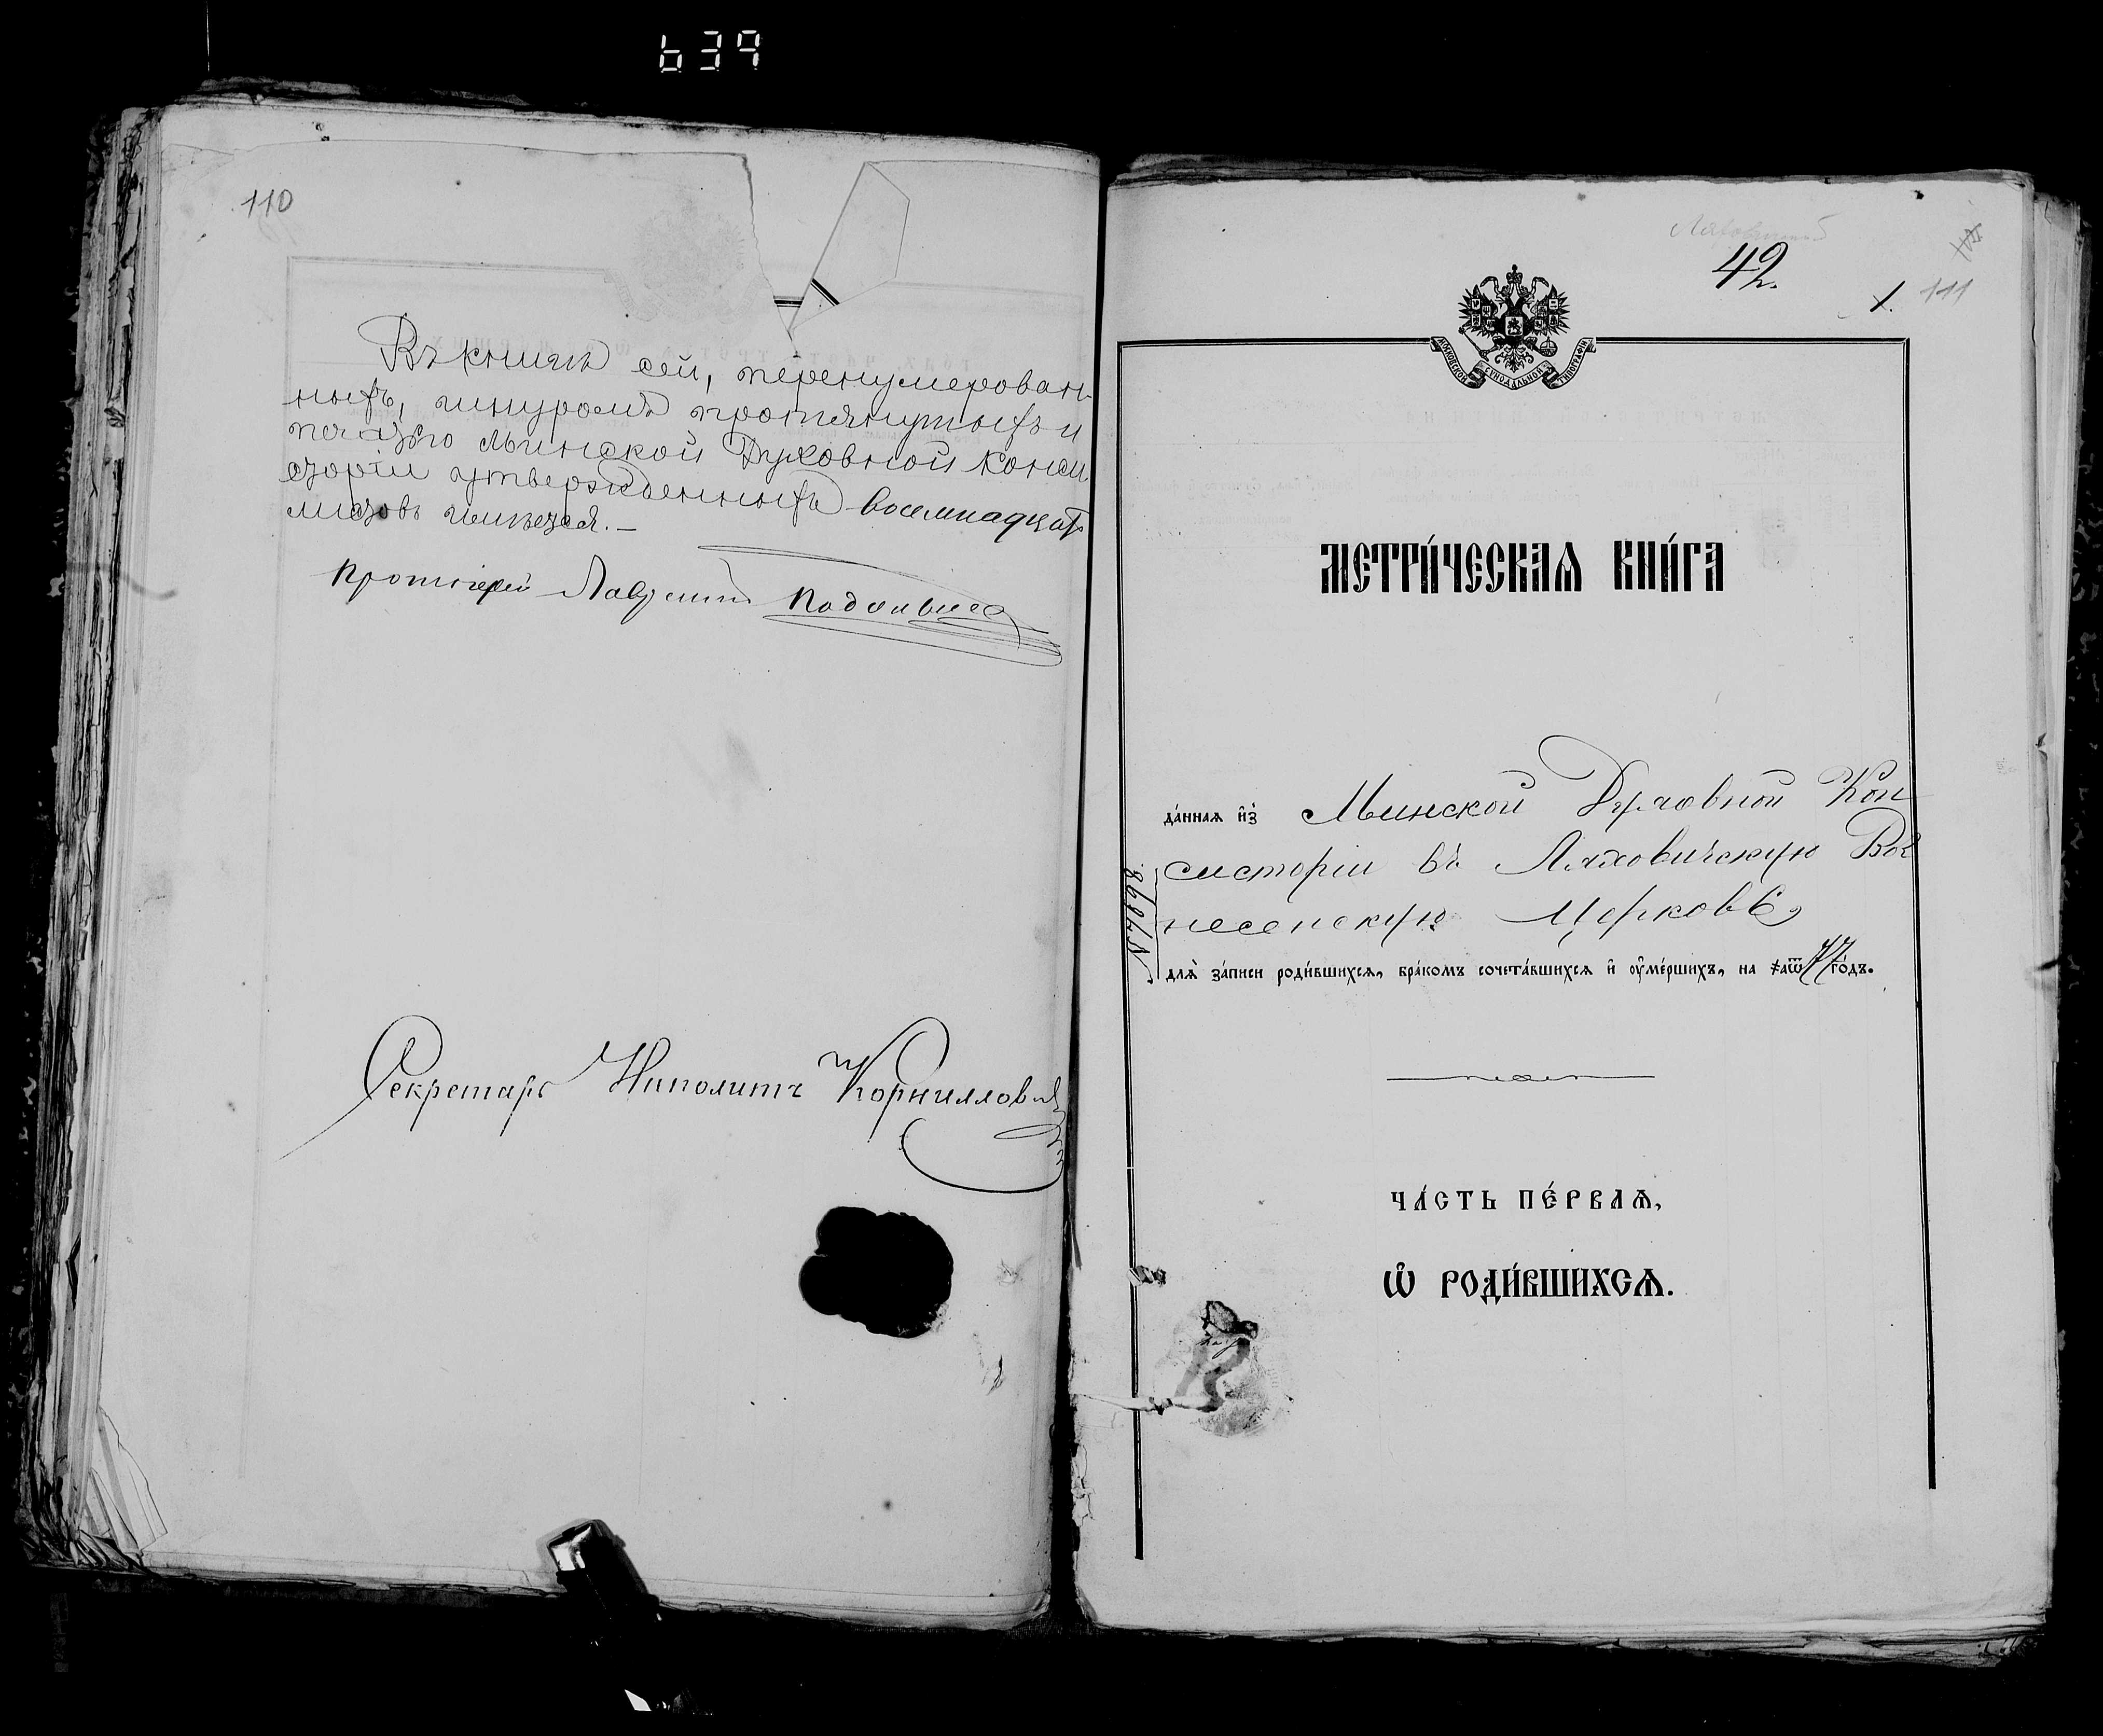 639
110
Въ книгѣ сей, перенумерован-
ныхъ, шнуромъ протянутыхъ и
печатью Минской Духовной Конси
сторіи утвержденныхъ восемнадцать
листовъ имѣется. —
Протоіерей Лаврентій
Секретарь Иполитъ Корниллов
42.
1. 111
МОСКОВСКОЙ СѴНОДАЛЬНОЙ ТИПОГРАФІИ
МЕТРИ́ЧЕСКАѦ КНИ́ГА
да́ннаѧ и҆з̾ Минской Духовной Кон
систоріи въ Ляховичскую Воз
несенскую Церковь,
длѧ̀ за́писи роди́вшихсѧ, бра́комъ сочета́вшихсѧ и҆ ᲂу҆ме́ршихъ, на ҂аѿ 77 го́дъ.
№ 7698
ЧА́СТЬ ПЕ́РВАѦ,
Ѽ РОДИ́ВШИХСѦ.